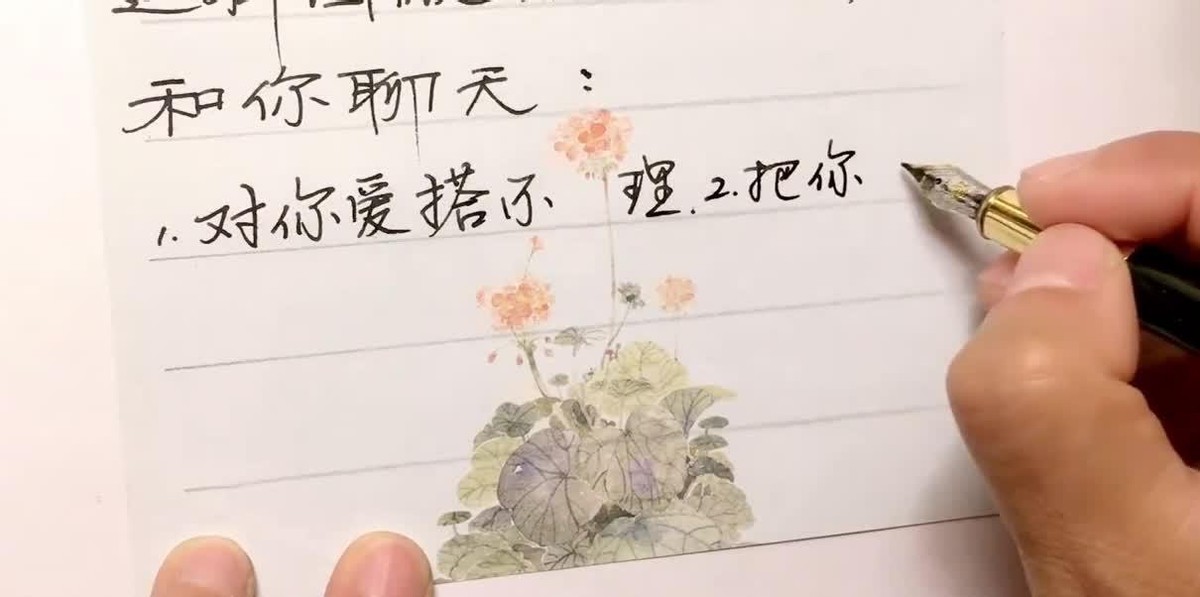 和你聊天：
1.对你爱搭不理.2.把你